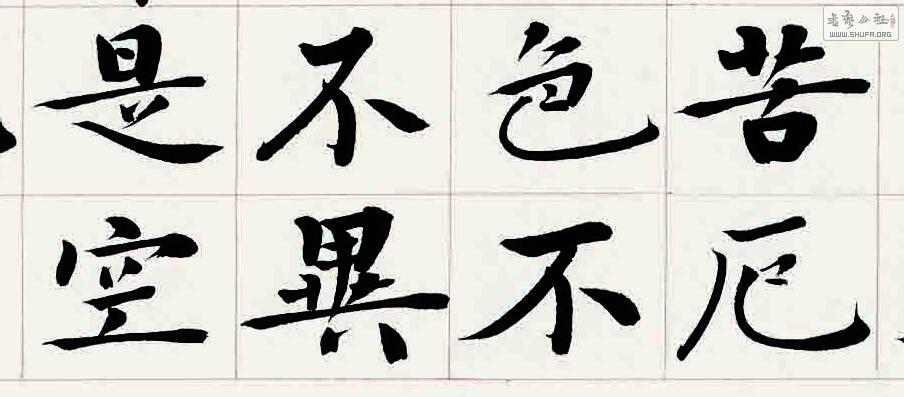 苦厄
色不
不異
是空
書藝公社
WWW.SHUFA.ORG